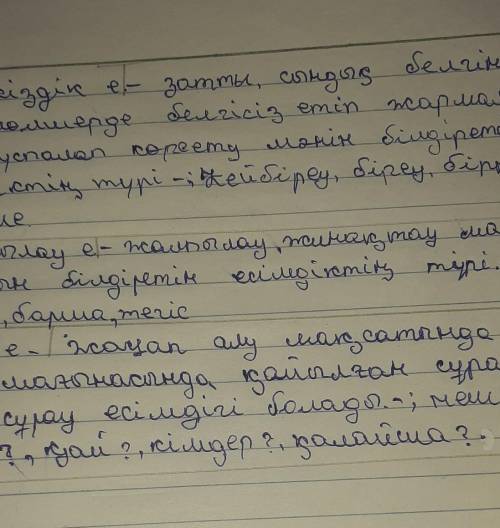 сіздік е - затты, сындық белгін
мөлшерде белгісіз етіп жарма
успалап көрсету мәнін білдірет
ктің түрі -; кейбіреу, біреу, бір
ме
ылау е - жалпылау, жинақтау ма
ын білдіретін есімдіктің түрі.
, барша, тегіс
е - жауап алу мақсатында
мағынасында қойылған сұра
сұрау есімдігі болады. -; неш
?, қай ?, кімдер ?, қалайша ?.